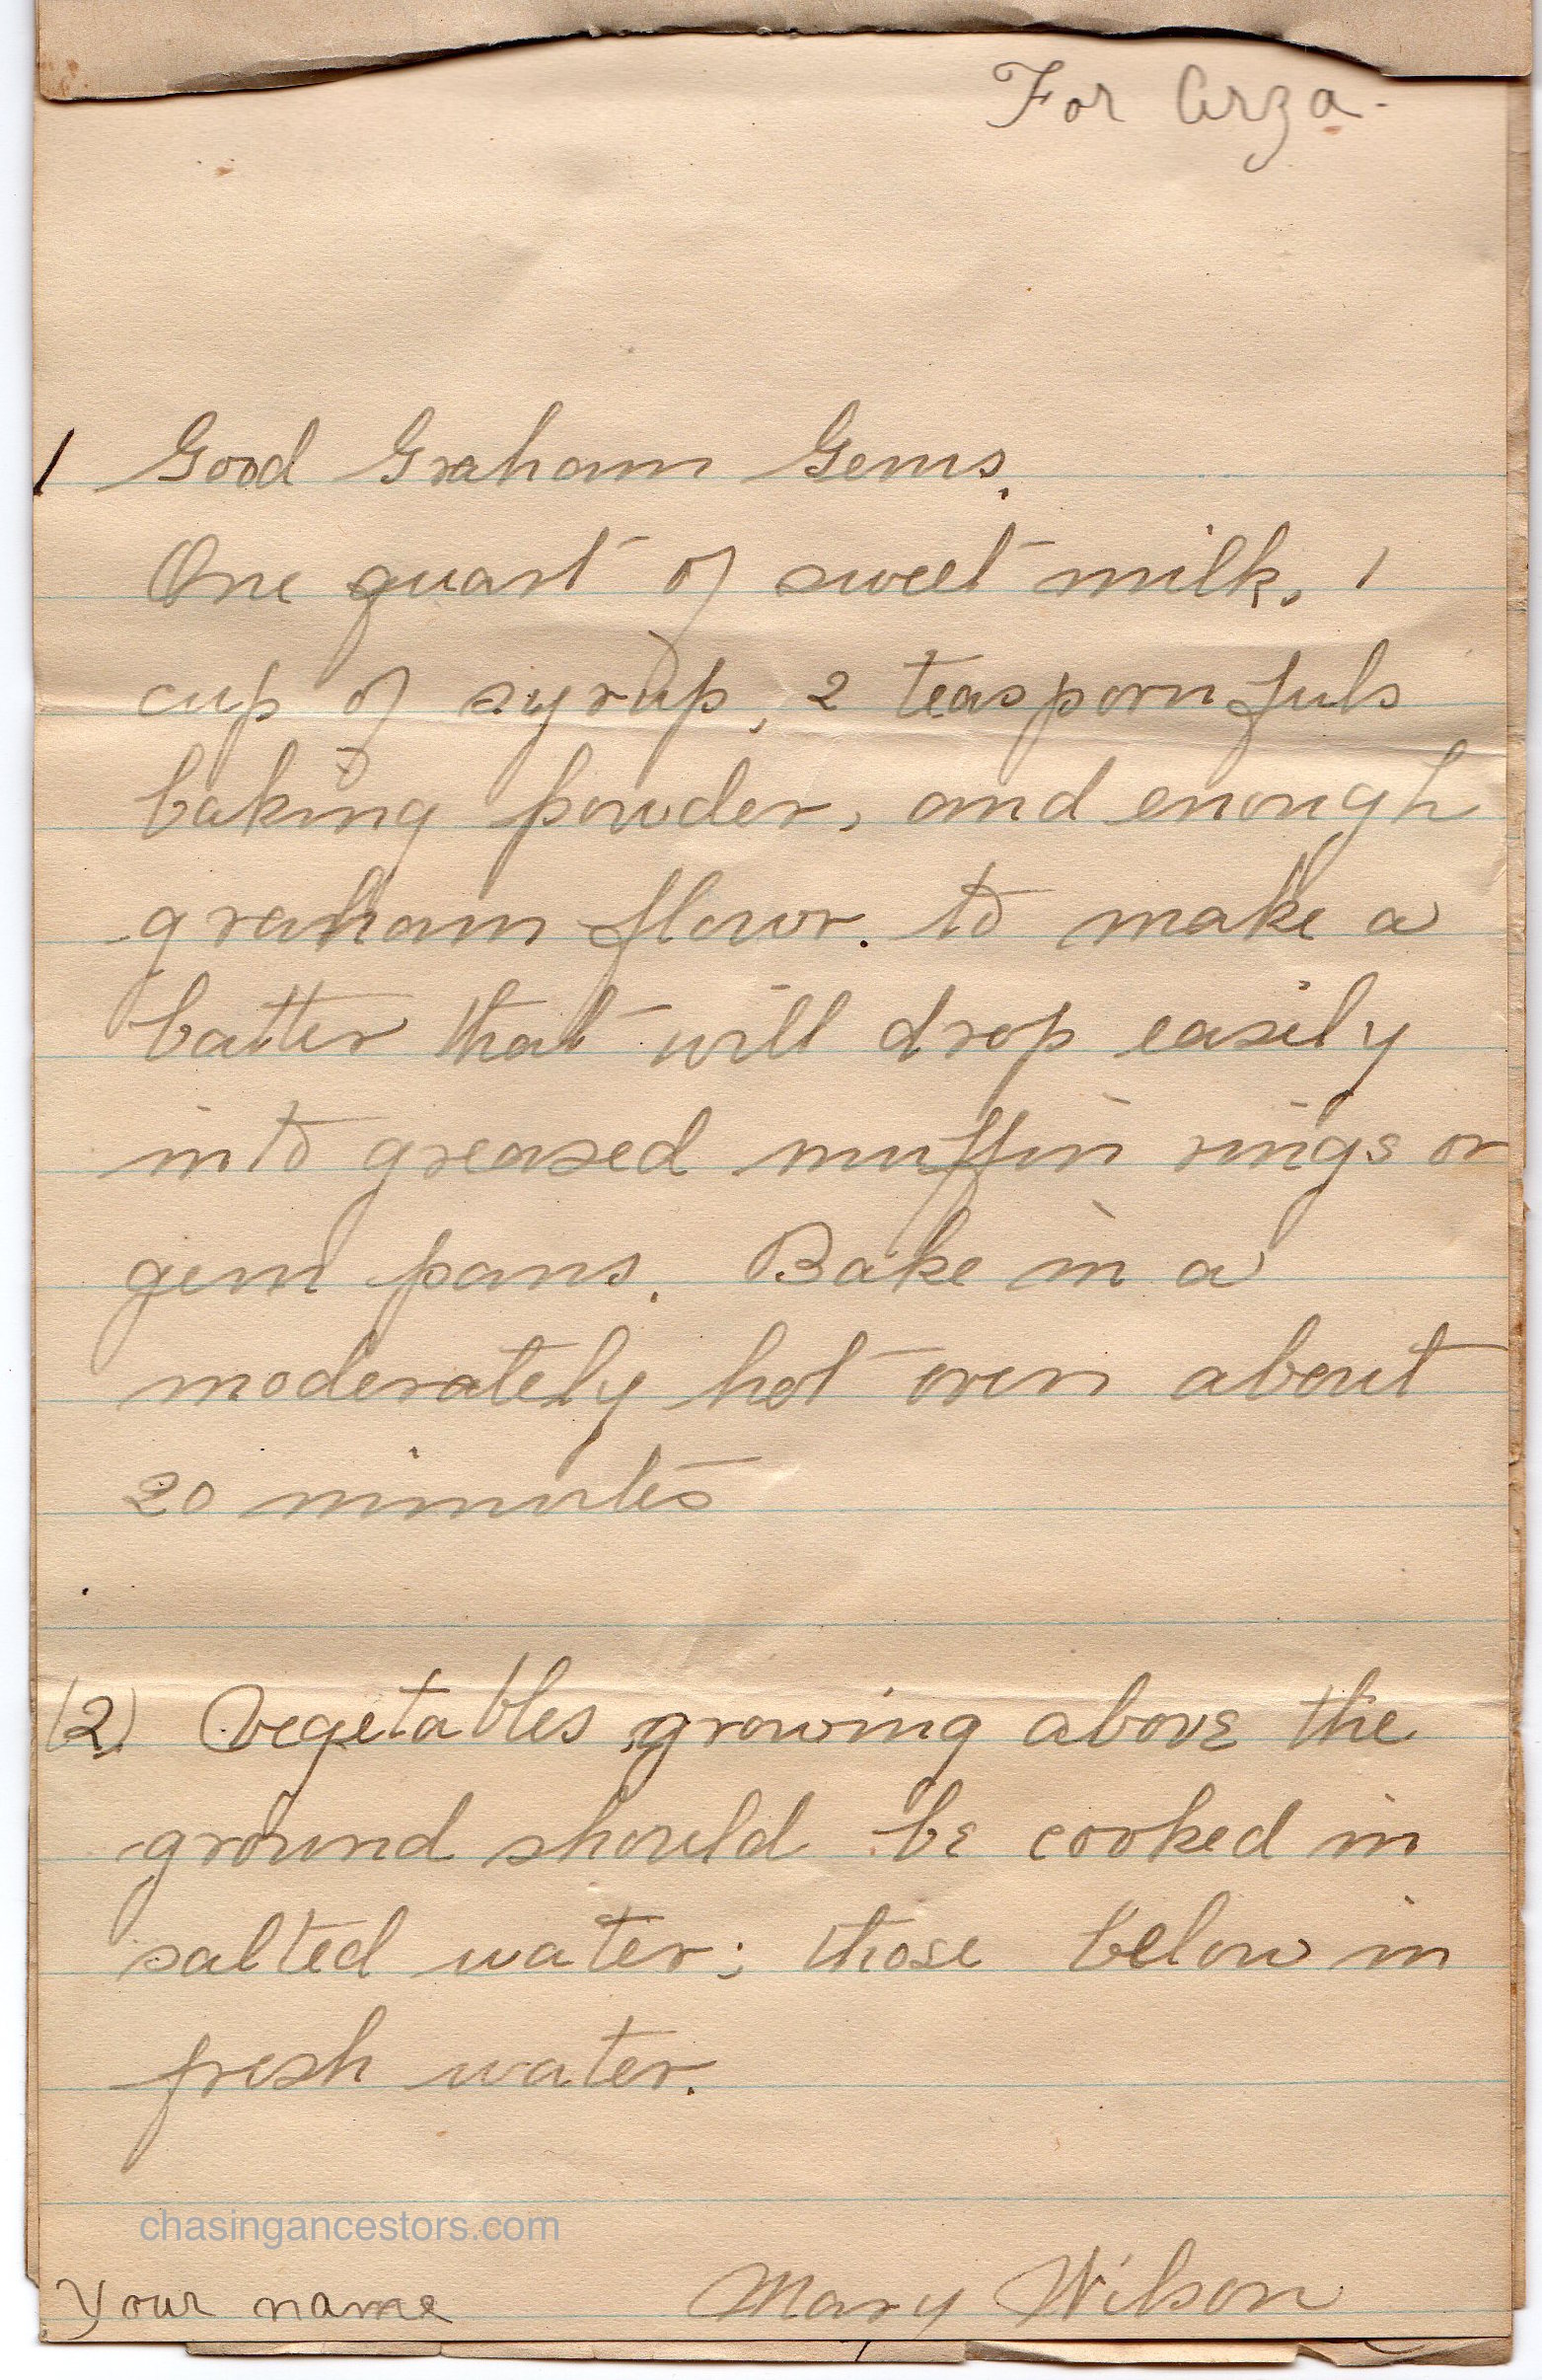 For Arza-
1 Good Graham Gems.
One quart of sweet milk, 1
cup of syrup, 2 teaspoonfuls
baking powder, and enough
graham flour. to make a
batter that will drop easily
into greased muffin rings or
gem pans. Bake in a
moderately hot oven about
20 minutes
(2) Vegetables growing above the
ground should be cooked in
salted water; those below in
fresh water.
chasingancestors.com
Your name Mary Wilson